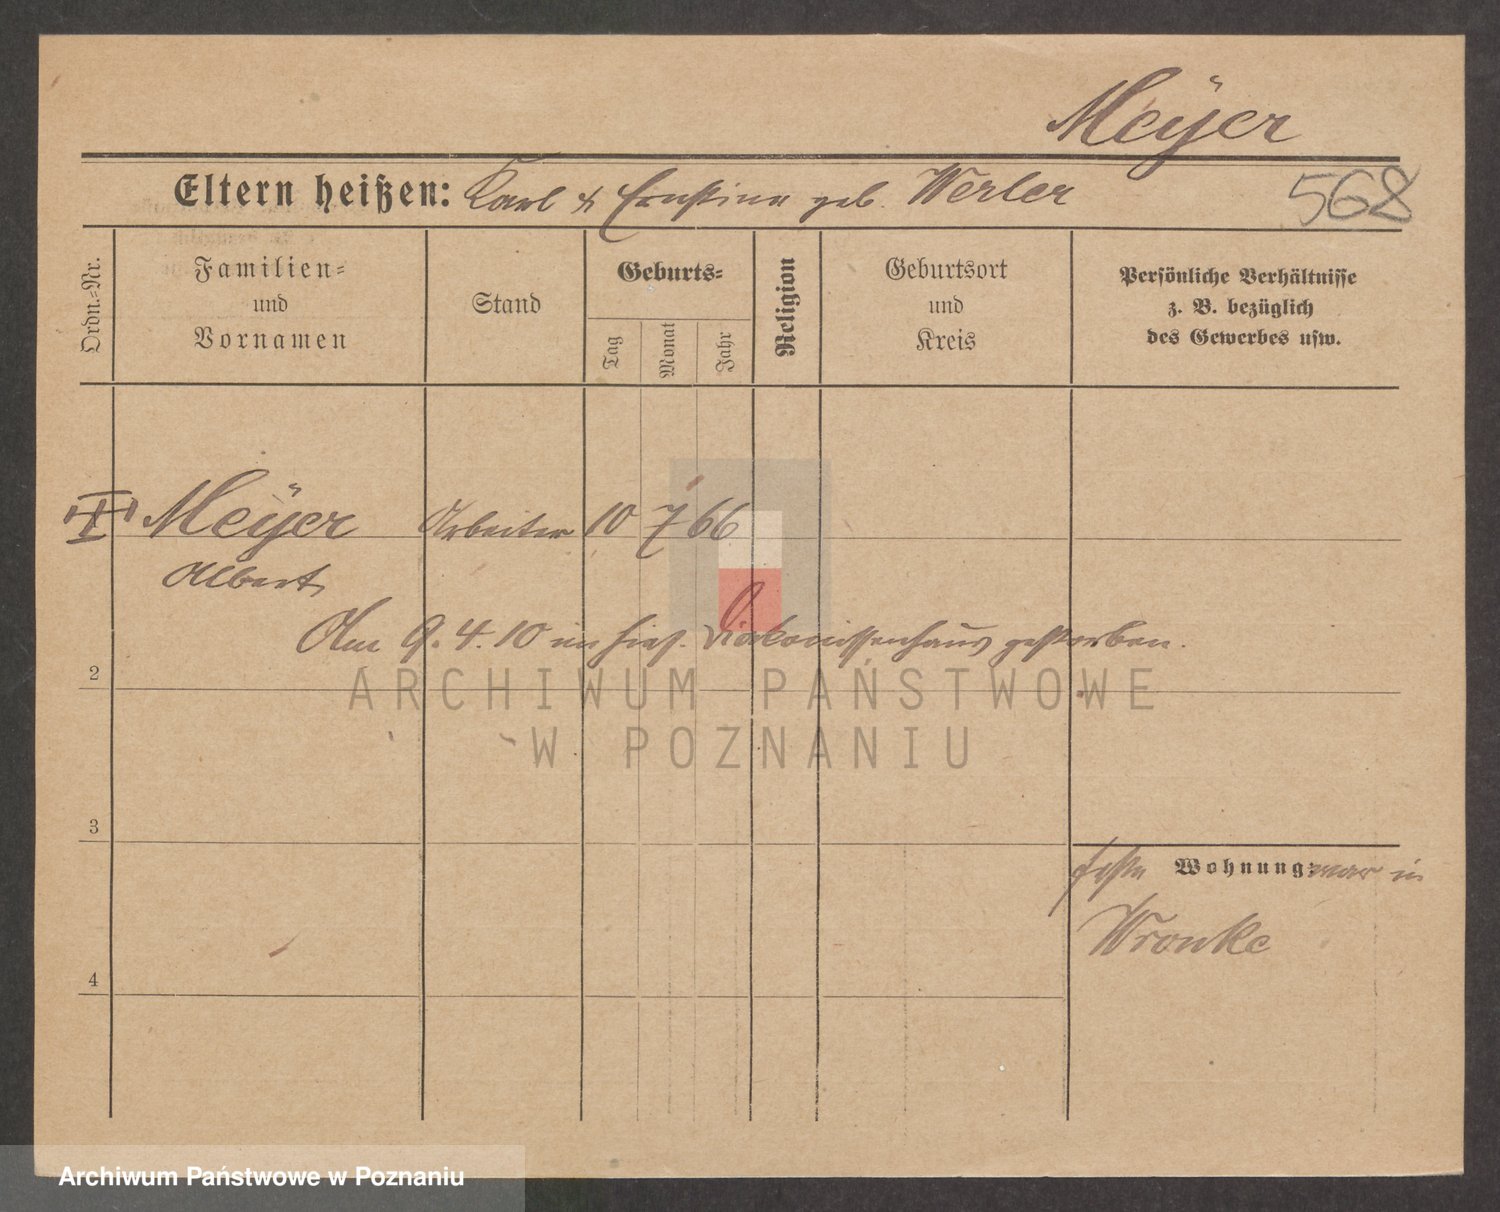 Meÿer
Eltern heißen: Karl & Ernstine geb. Werler
568
Ordn.-Nr.
Familien-
und
Vornamen
Stand
Geburts-
Tag
Monat
Jahr
Religion
Geburtsort
und
Kreis
Persönliche Verhältnisse
z. B. bezüglich
des Gewerbes usw.
Meÿer Arbeiter 10 7 66
Albert
Am 9. 4. 10 im hies. Diakonissenhaus gestorben.
2
ARCHIWUM PAŃSTWOWE
W POZNANIU
3
feste Wohnung: war in
Wronke
4
Archiwum Państwowe w Poznaniu